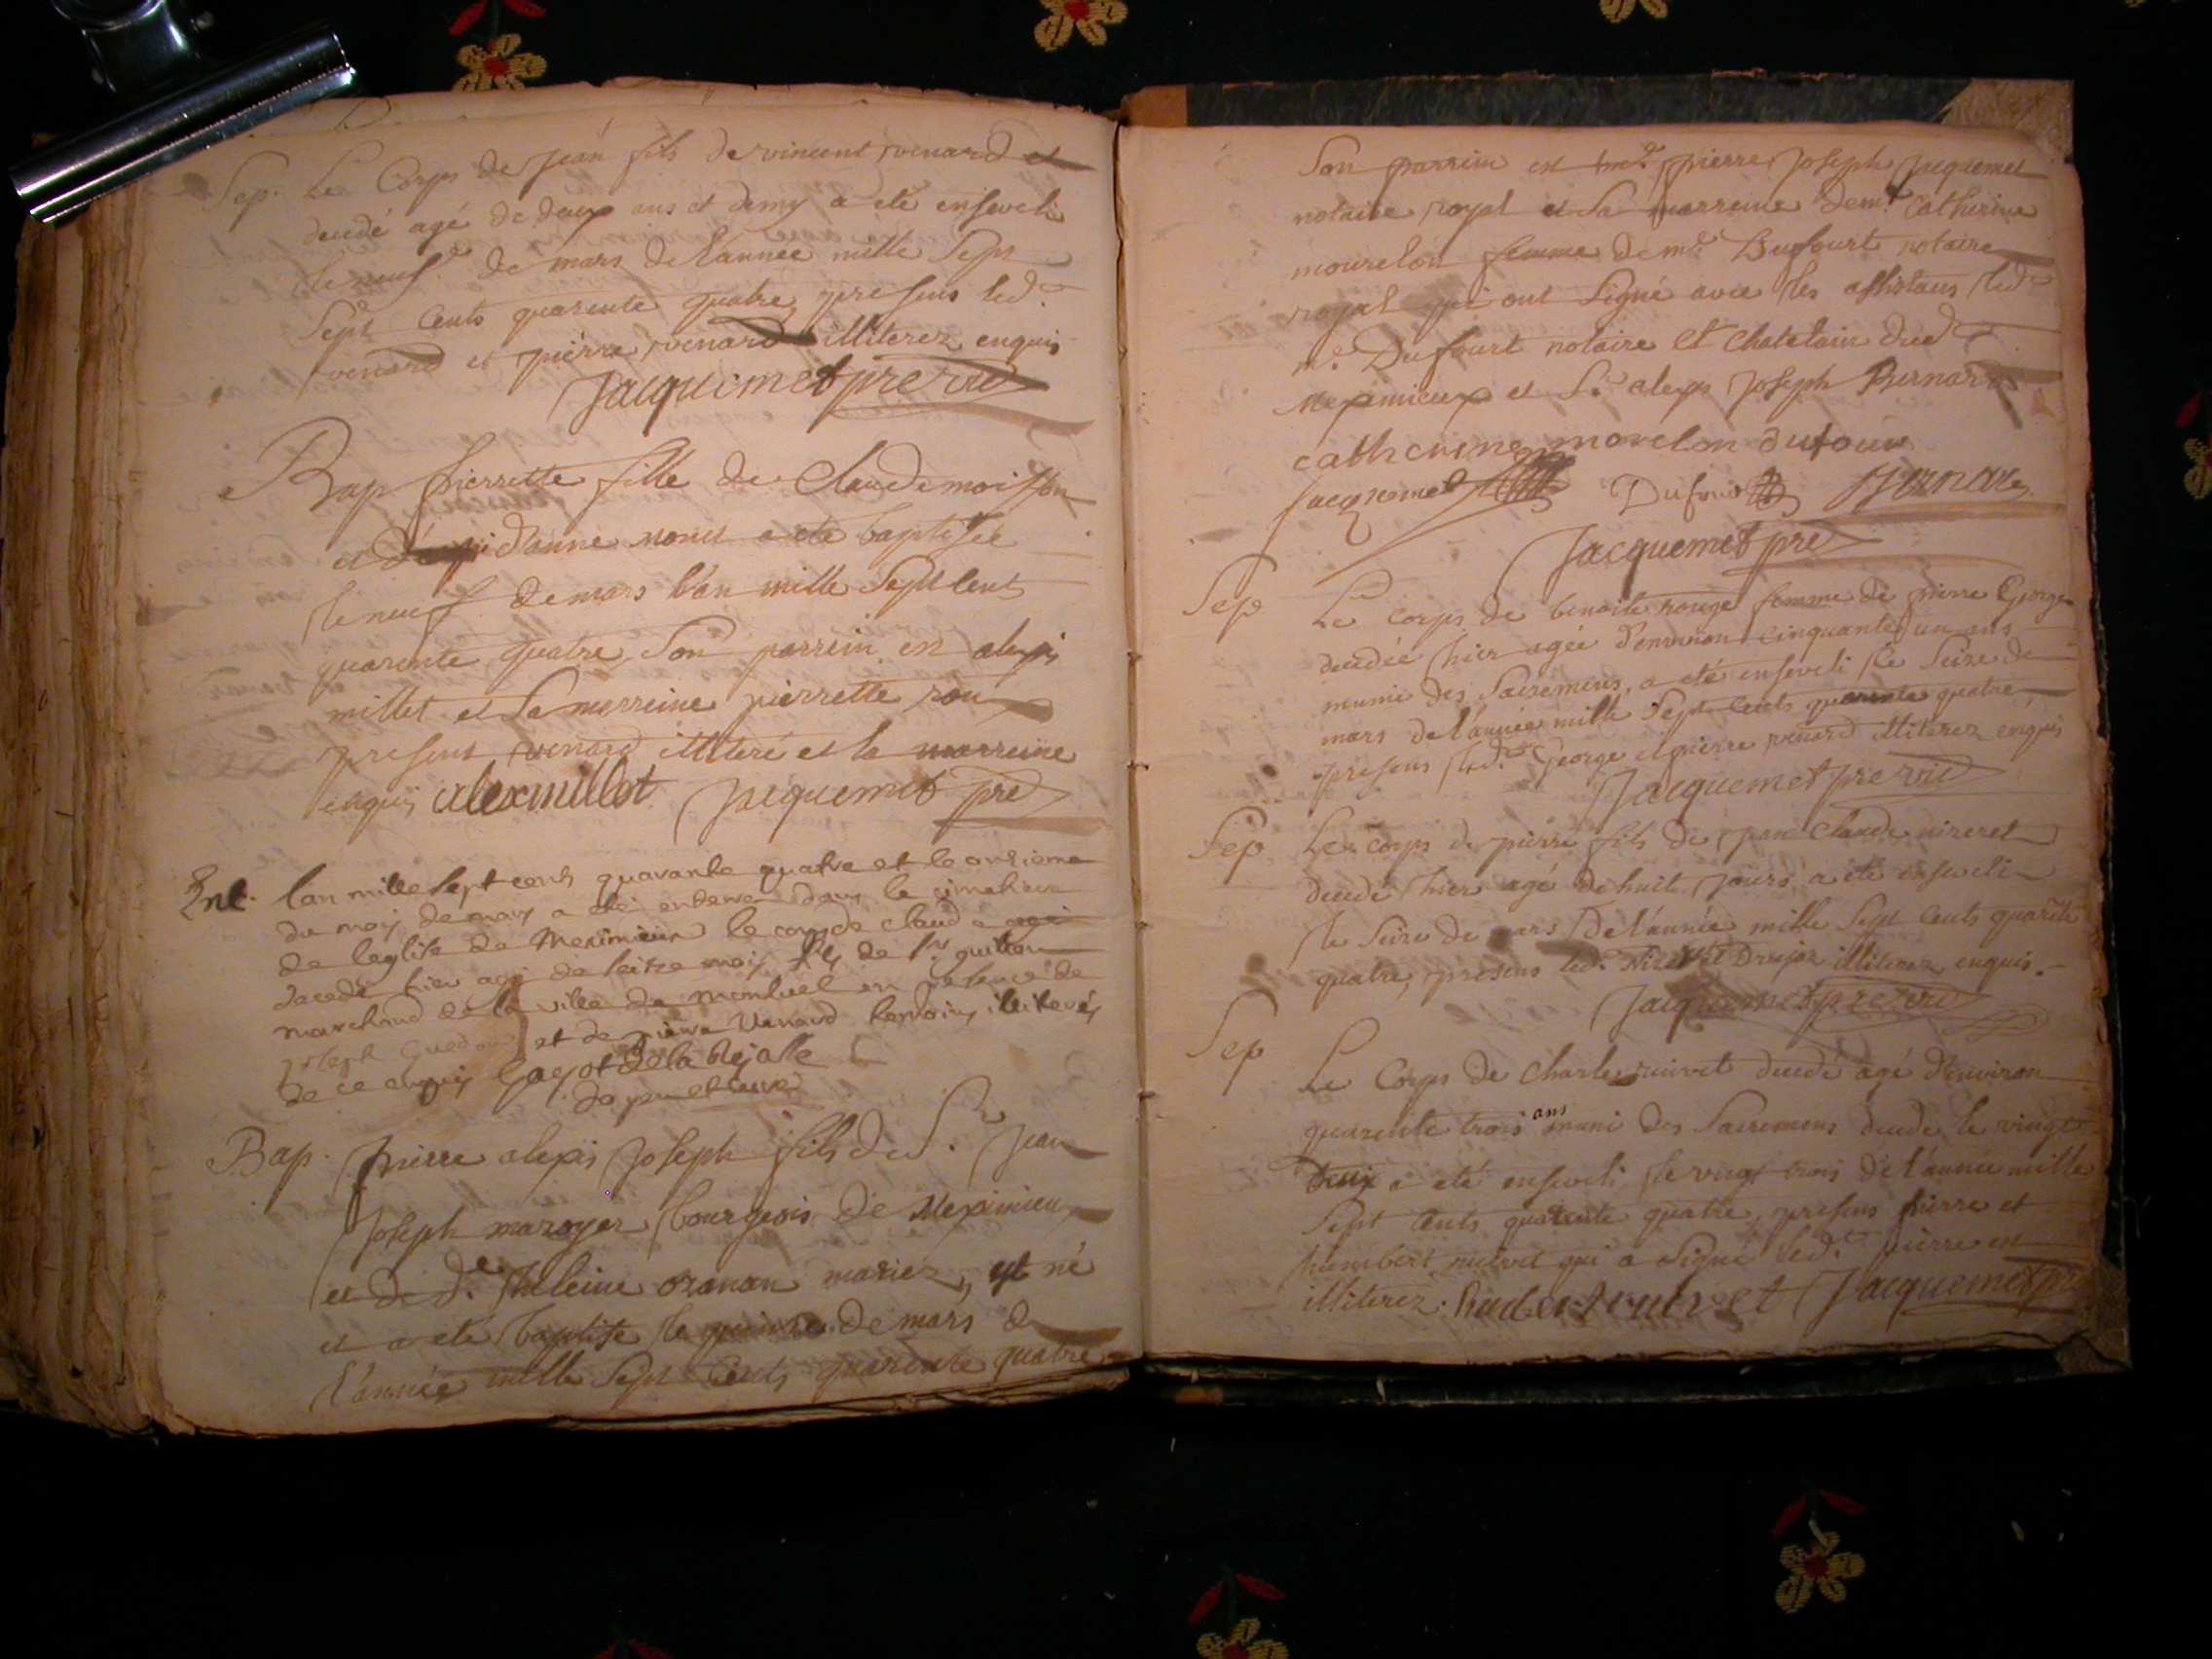 Sep. Le Corps de Jean fils de vincent venard et
decedé agé de deux ans et demy a eté enseveli
le neuf de mars de l'année mille Sept
Sept Cents quarente quatre, presens led.
venard et pierre venard illiterez enquis
Jacquemet pre vic
Bap. pierrette fille de Claude moisson
et d'anne monet a eté baptisée
le neuf de mars l'an mille Sept Cent
quarente quatre, Son parrein est alexis
millet et Sa marreine pierrette
present venard illiteré et la marreine
enquis alexmillet Jacquemet pre
Ent. lan mille sept cent quarante quatre et le onzieme
du mois de mars a été enterré dans le cimetiere
de leglise de Meximieux le corps de claude
decedé hier agé de seitze mois fils de Sr guillon
marchand de la ville de Monluel en presence de
joseph et de pierre Venard temoins illiterés
de ce enquis
Bap. pierre alexis Joseph fils de S.r Jean
Joseph maroyer bourgeois de Meximieux
et de d.e heleine oranan mariez, est né
et a eté baptise le quinze de mars de
l'année mille Sept Cents quarente quatre
Son parrein est me. pierre Joseph Jacquemet
notaire royal et Sa marreine dem. Catherine
mourelon femme de me. Dufourt notaire
royal qui ont Signé avec les assistans led.
me. Dufourt notaire et Chatelain dud.
Meximieux et Sr. alexis Joseph Bernard
catherine morelon dufour
Jacquemet Dufour Bernard
Jacquemet pre
Sep Le corps de benoite rouge femme de pierre George
decedée hier agée d'environ cinquante un ans
munie des Sacremens, a eté enseveli le Seize de
mars de l'année mille Sept Cents quarente quatre
presens led. George et pierre venard illiterez enquis
Jacquemet pre vic
Sep Le corps de pierre fils de Claude nizeret
decedé hier agé de huit Jours a eté enseveli
le Seize de mars de l'année mille Sept Cents quarente
quatre, presens led. Nizeret illiterez enquis.
Jacquemet pre vic
Sep Le Corps de Charles decedé agé d'environ
quarente trois ans muni des Sacremens decedé le vingt
deux a eté enseveli le vingt trois de l'année mille
Sept Cents quarente quatre, presens pierre et
humbert qui a Signé led. pierre est
illiterez. Jacquemet pre